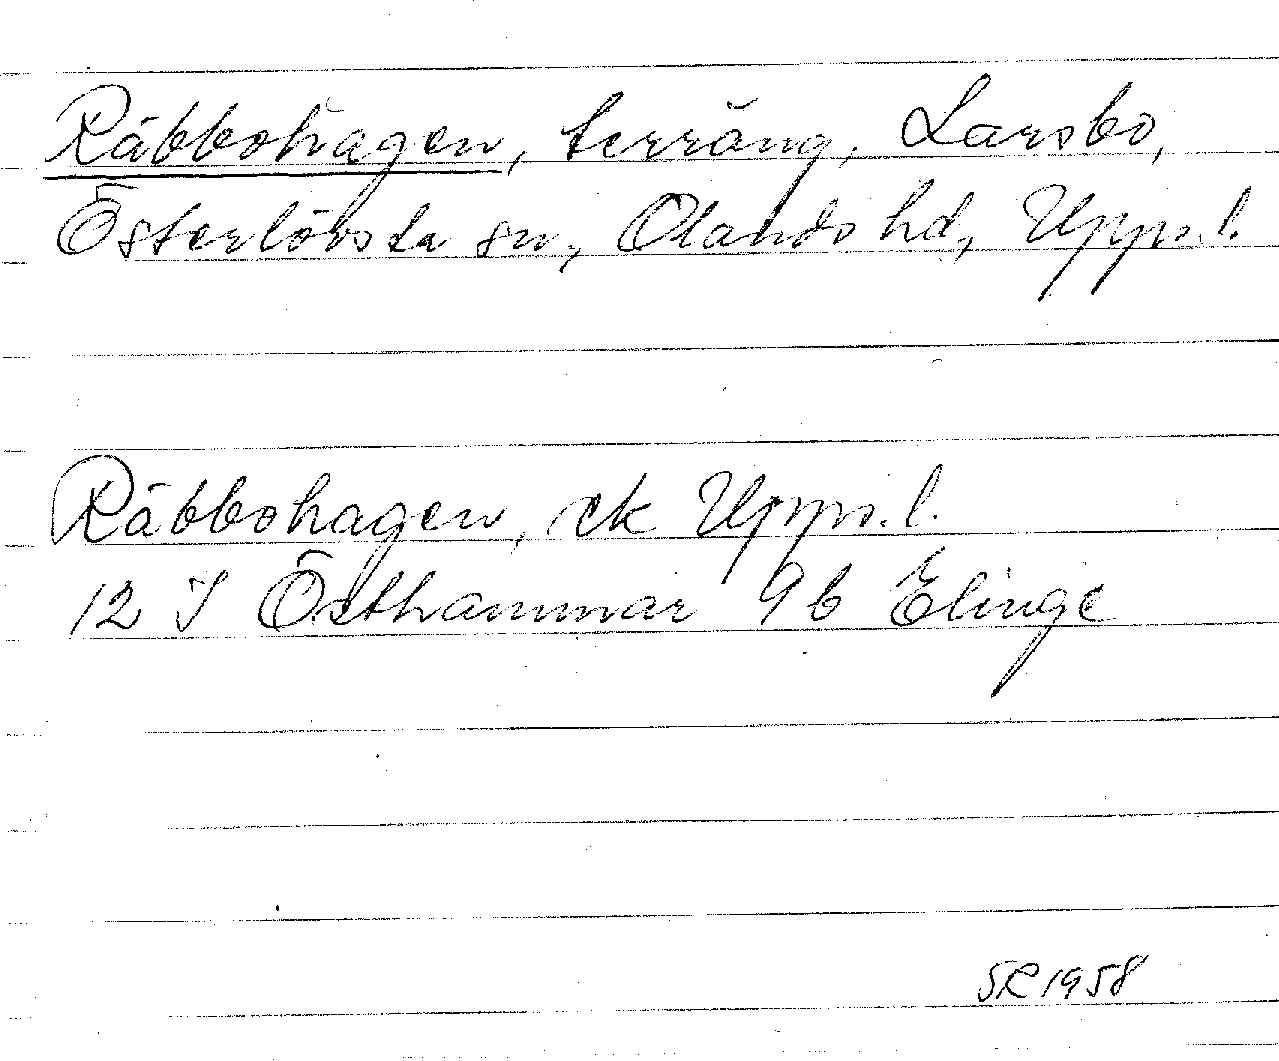 Räbbohagen, terräng, Larsbo,
Österlövsta sn, Olands hd, Upps. l.
Räbbohagen, ek Upps. l.
12 I Östhammar 9b Elinge
SR 1958